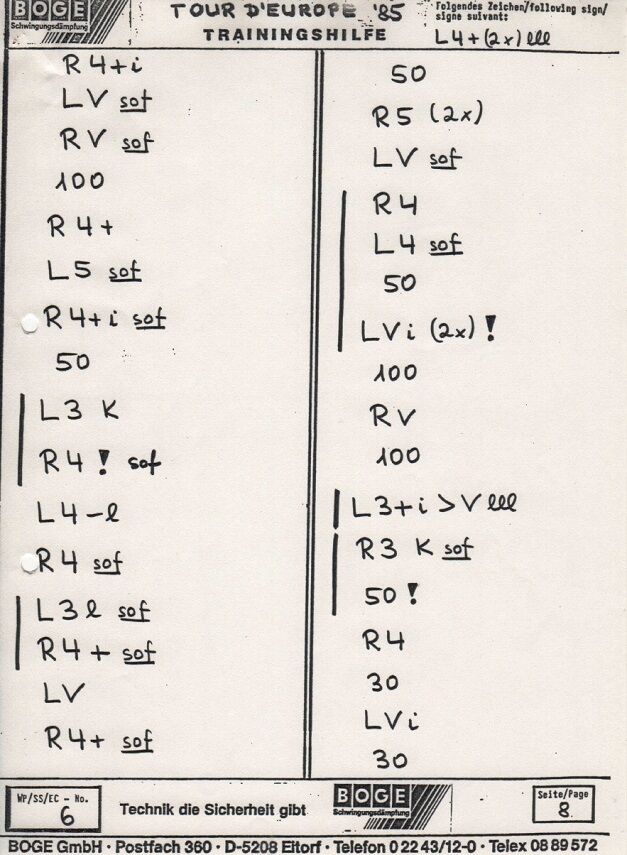 BOGE
Schwingungsdämpfung
TOUR D'EUROPE '85
TRAININGSHILFE
Folgendes Zeichen/following sign/
signe suivant:
L4+(2x) lll
R4+i
LV sof
RV sof
100
R4+
L5 sof
R4+i sof
50
L3 K
R4! sof
L4-l
R4 sof
L3l sof
R4+ sof
LV
R4+ sof
50
R5 (2x)
LV sof
R4
L4 sof
50
LVi (2x)!
100
RV
100
L3+i>V lll
R3 K sof
50!
R4
30
LVi
30
WP/SS/EC - No.
6
Technik die Sicherheit gibt
BOGE
Schwingungsdämpfung
Seite/Page
8
BOGE GmbH · Postfach 360 · D-5208 Eitorf · Telefon 0 22 43/12-0 · Telex 08 89 572